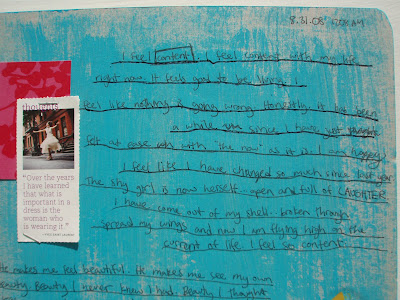 8.31.08 1:02 AM
I feel content. I feel content with my life
right now. It feels good to be here. I
feel like nothing is going wrong. Honestly, it has been
a while since I have not thought
felt at ease with with "the now" as it is. I am happy.
I feel like I have changed so much since last year
The shy girl is now herself... open and full of LAUGHTER.
I have come out of my shell. broken through
spread my wings and now I am flying high on the
current of life. I feel so content...
He makes me feel beautiful. He makes me see my own
beauty. Beauty I never knew I had. Beauty I thought
thoughts
"Over the years
I have learned
that what is
important in a
dress is the
woman who
is wearing it."